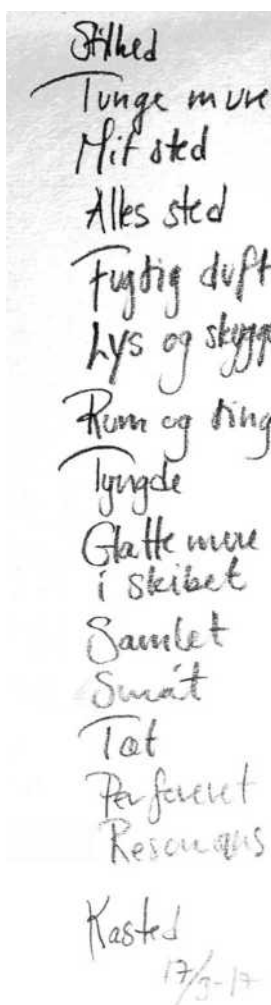 Stilhed
Tunge mure
Mit sted
Alles sted
Fugtig duft
Lys og skygge
Rum og ting
Tyngde
Glatte mure
i skibet
Samlet
Småt
Tæt
Perforeret
Resonans
Kasted
17/3-17